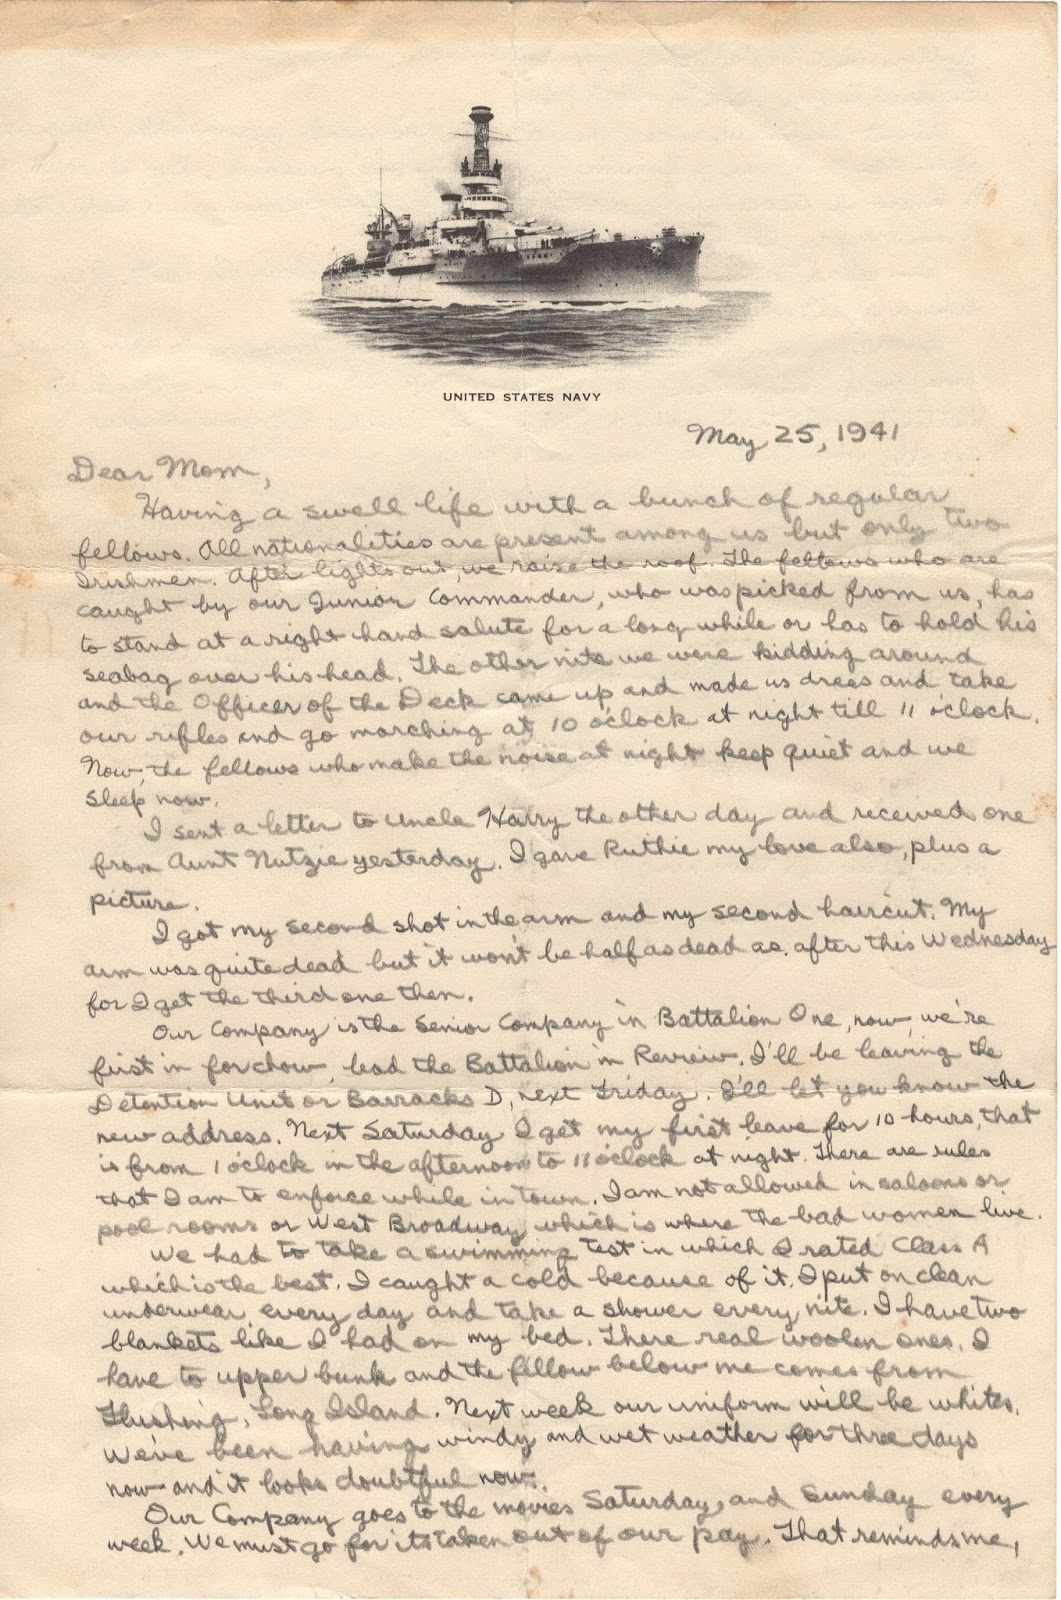 UNITED STATES NAVY
May 25, 1941
Dear Mom,
Having a swell life with a bunch of regular
fellows. All nationalities are present among us but only two
Irishmen. After lights out, we raise the roof. The fellows who are
caught by our Junior Commander, who was picked from us, has
to stand at a right hand salute for a long while or has to hold his
seabag over his head. The other nite we were kidding around
and the Officer of the Deck came up and made us dress and take
our rifles and go marching at 10 o'clock at night till 11 o'clock.
Now, the fellows who make the noise at night keep quiet and we
sleep now.
I sent a letter to Uncle Harry the other day and received one
from Aunt Nutzie yesterday. I gave Ruthie my love also, plus a
picture.
I got my second shot in the arm and my second haircut. My
arm was quite dead but it won't be half as dead as after this Wednesday
for I get the third one then.
Our Company is the Senior Company in Battalion One, now, we're
first in for chow, lead the Battalion in Review. I'll be leaving the
Detention Unit or Barracks D, next Friday. I'll let you know the
new address. Next Saturday I get my first leave for 10 hours, that
is from 1 o'clock in the afternoon to 11 o'clock at night. There are rules
that I am to enforce while in town. I am not allowed in saloons or
pool rooms or West Broadway which is where the bad women live.
We had to take a swimming test in which I rated Class A
which is the best. I caught a cold because of it. I put on clean
underwear every day and take a shower every nite. I have two
blankets like I had on my bed. There real woolen ones. I
have to upper bunk and the fellow below me comes from
Flushing, Long Island. Next week our uniform will be whites.
We've been having windy and wet weather for three days
now and it looks doubtful now.
Our Company goes to the movies Saturday, and Sunday every
week. We must go for its taken out of our pay. That reminds me,